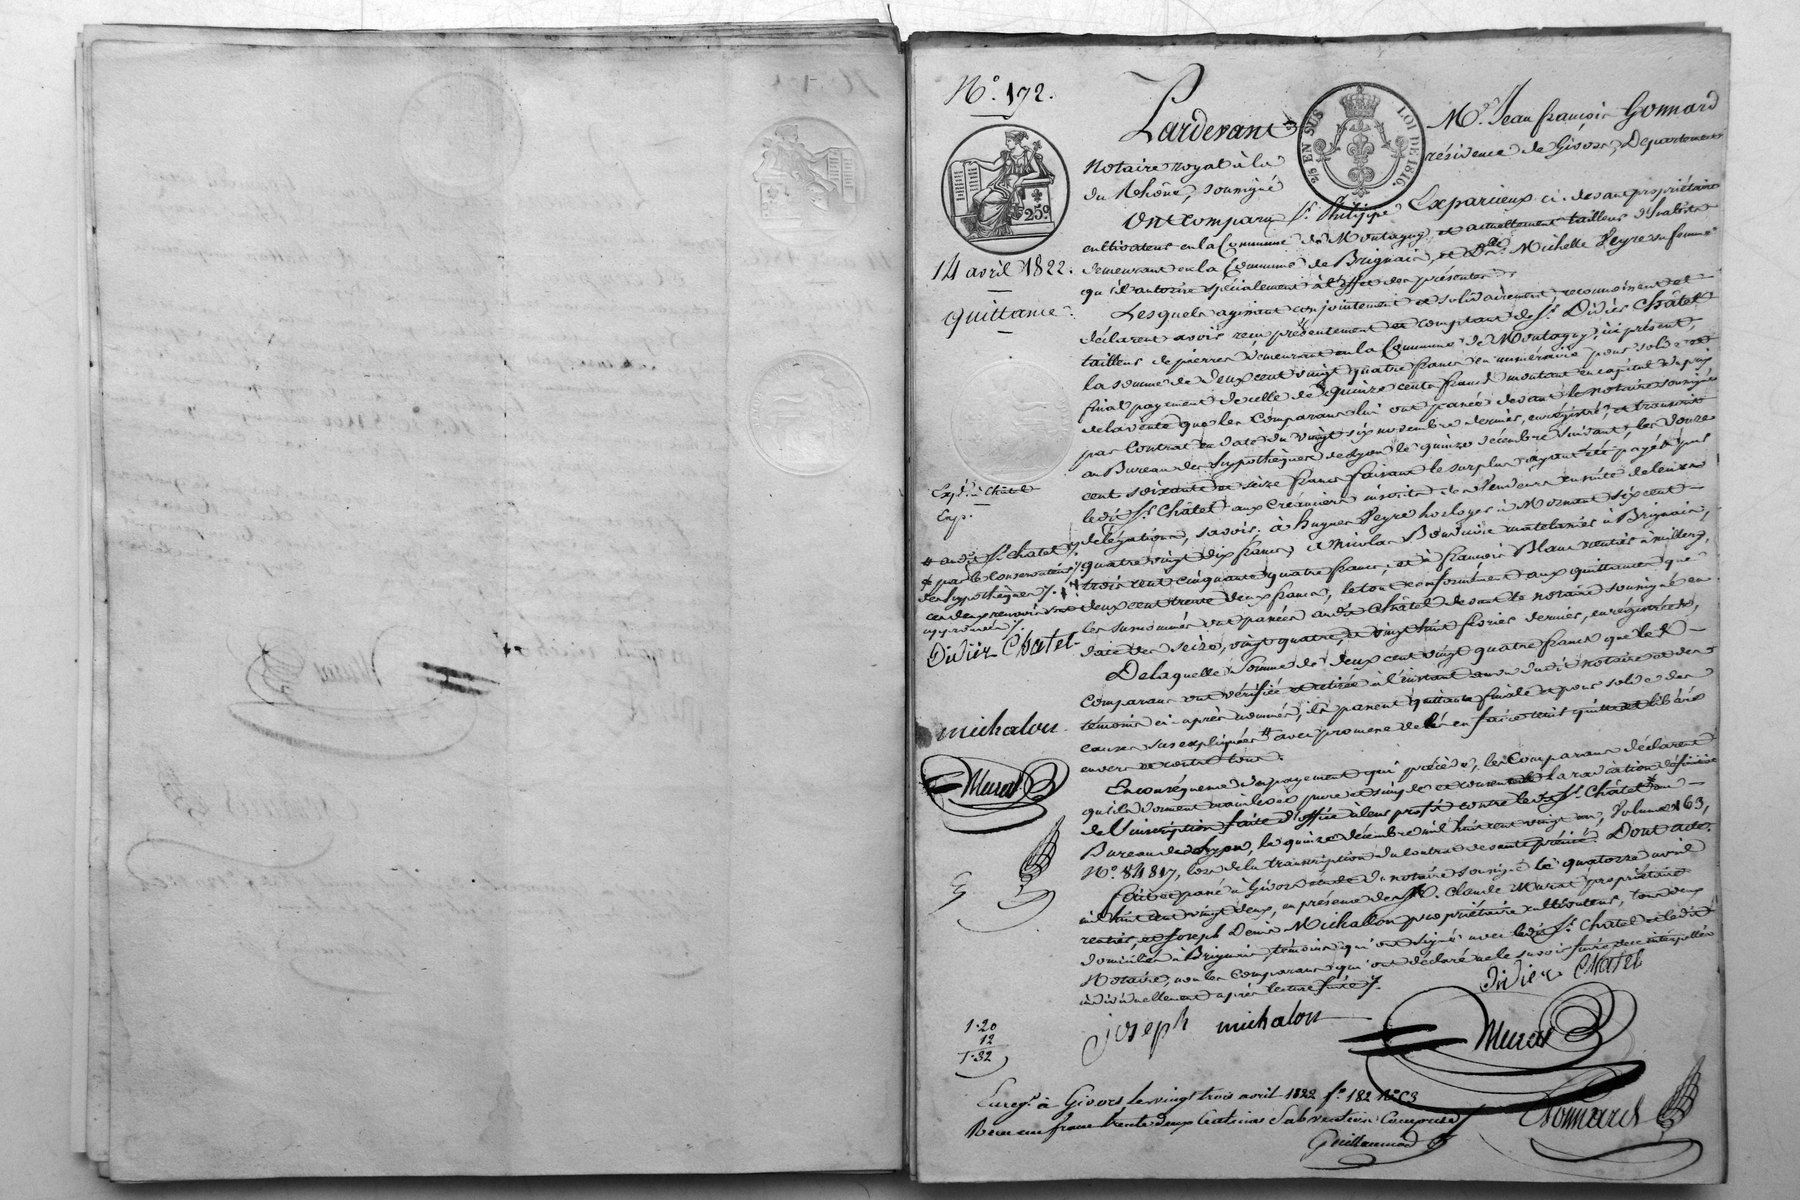 N.° 172.
Pardevant M.e Jean françois Gonnard
Notaire royal à la résidence de Givors, Departement
du Rhône, soussigné
25 EN SUS
LOI DE 1816
25c
14 avril 1822.
quittance
Ont comparu S.r Philippe Exparcieux ci-devant propriétaire
cultivateur en la Commune de Montagny, et actuellement tailleur d'habits
demeurant en la Commune de Brignais, et D.e Michelle Peyre sa femme
qu'il autorise spécialement à l'effet des présentes.
Lesquels agissant conjointement et solidairement, reconnoissent et
déclarent avoir reçu présentement et comptant de S.r Didier Châtel
tailleur de pierres demeurant en la Commune de Montagny, ici présent,
la somme de Deux cent vingt quatre francs en numéraire pour solde et
final payement de celle de quinze cents francs montant en capital du prix
de la vente que les Comparans lui ont passée devant le notaire soussigné
par Contrat en date du vingt six novembre dernier, enrégistré, et transcrit
au Bureau des hypothèques de Lyon le quinze décembre suivant; les Douze
cent soixante et seize francs faisant le surplus ayant été payés par
ledit S.r Châtel aux Créanciers inscrits des Vendeurs ensuite de leurs
délégations, savoir: à hugues Peyre horloger à Mornant six cent
quatre vingt dix francs, à nicolas Bonnivie matelassier à Brignais,
trois cent cinquante quatre francs, et à françois Blanc rentier à Millery,
deux cent trente deux francs, le tout conformément aux quittances que
les susnommés ont passées audit Châtel devant le notaire soussigné en
date des seize, vingt quatre, et vingt huit février dernier, enregistrées,
Exp. à Châtel
Exp.
# audit S.r Chatel /.
# par le Conservateur
des hypothèques /.
ces deux renvois sont
approuvés /.
Didier Chatel
De laquelle Somme de deux cent vingt quatre francs que les
Comparans ont vérifiée et retirée à l'instant au vu dudit notaire et des
témoins ci-après nommés, ils passent quittance finale et pour solde des
causes sus expliquées # avec promesse de l'en faire tenir quitte et libéré
envers et contre tous.
michalon
Murat
En conséquence du payement qui précède, les Comparans déclarent
qu'ils donnent mainlevée pure et simple et consentent la radiation définitive
de L'inscription faite d'office à leur profit contre ledit S.r Châtel au
Bureau de Lyon, le quinze décembre mil huit cent vingt un, Volume 163,
N.° 84817, lors de la transcription du contrat de vente précité. Dont acte.
fait et passé à Givors étude du notaire soussigné le quatorze avril
mil huit cent vingt deux, en présence de S.r Claude Murat propriétaire
rentier, et Joseph Denis Michallon propriétaire cultivateur, tous deux
domiciliés à Brignais, témoins qui ont signé avec ledit S.r Châtel et ledit
Notaire, non les Comparans qui ont déclaré ne le savoir faire de ce interpellés
individuellement après lecture faite /.
Didier Chatel
joseph michalon
Murat
1.20
12
1.32
Enreg.é à Givors le vingt trois avril 1822 f.° 182 R.° C3
Reçu un franc trente deux Centimes Subvention Comprise
Guillaumod
Gonnard